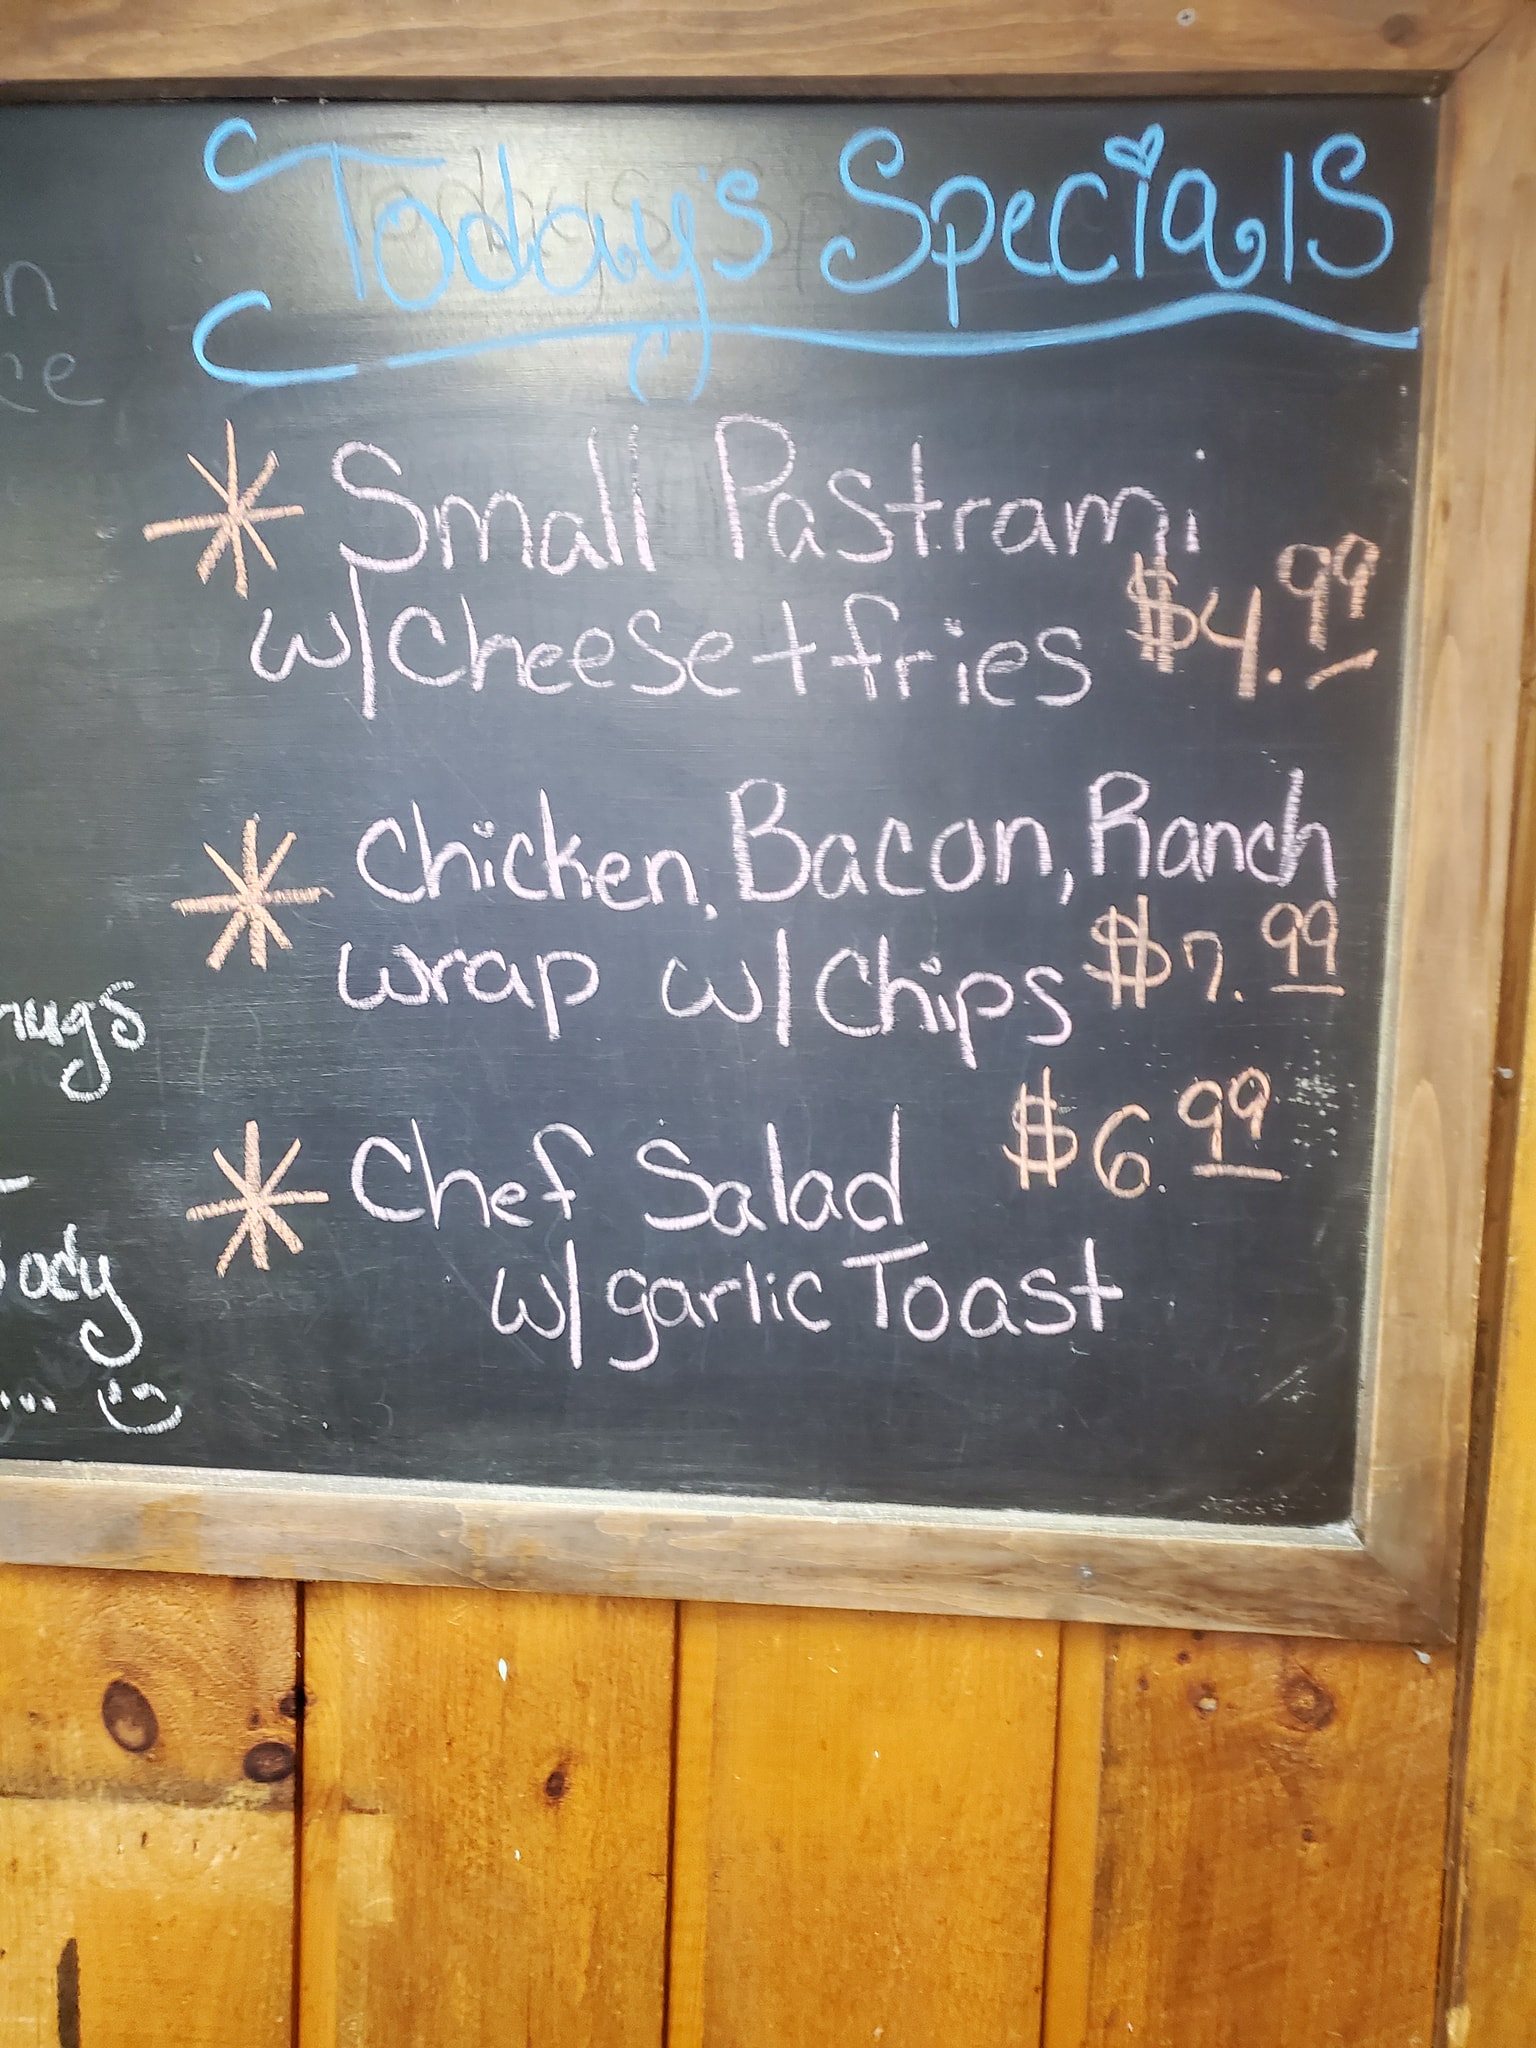 Today's Specials
Small Pastrami
w/Cheese + fries $4.99
Chicken, Bacon, Ranch
wrap w/Chips $7.99
Chef Salad $6.99
w/garlic Toast